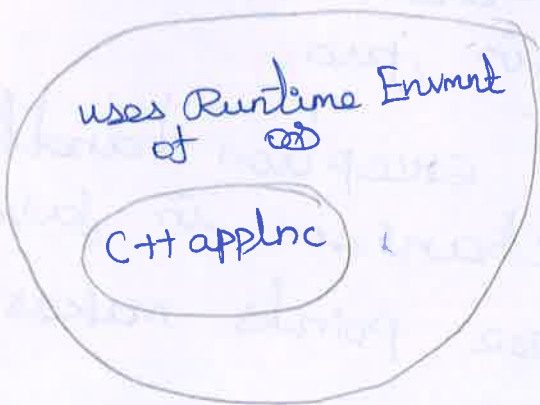 uses Runtime Envmnt
of
C++ applnc